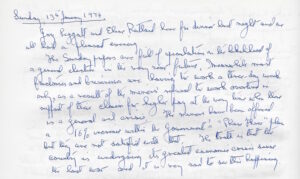 Sunday, 13th January 1974
Guy and Elise here for dinner last night and we
all had a pleasant evening.
The Sunday papers are full of speculation on the likelihood of
a general election in the very near future. Meanwhile most
factories and businesses are having to work a three-day week
only as a result of the miners' refusal to work overtime in
support of their claim for higher pay at the very time when there
is a general oil crisis. The miners have been offered
a 16% increase within the Government's "Phase Three" plan
but they are not satisfied with that. The truth is that the
country is undergoing its greatest economic crisis since
the last war and it is very sad to see this happening